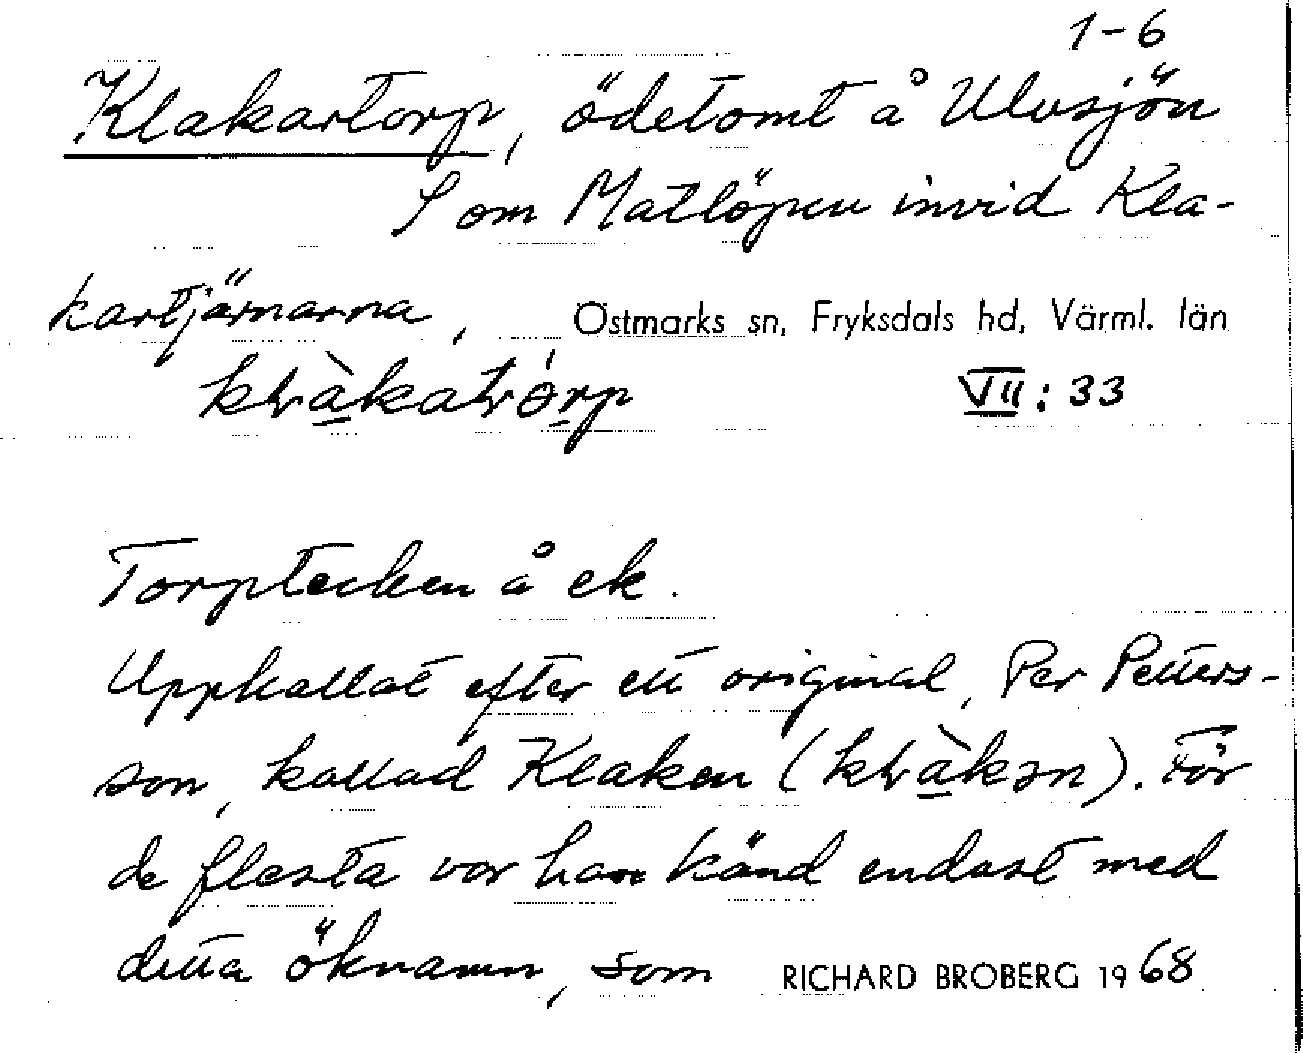 1-6
Klakartorp, ödetomt å Ulvsjön
S om Matlöpen invid Kla-
kartjärnarna, Östmarks sn, Fryksdals hd, Värml. län
VII: 33
Torptecken å ek.
Uppkallat efter ett original, Per Petters-
son, kallad Klaken (). För
de flesta var han känd endast med
detta öknamn, som RICHARD BROBERG 1968